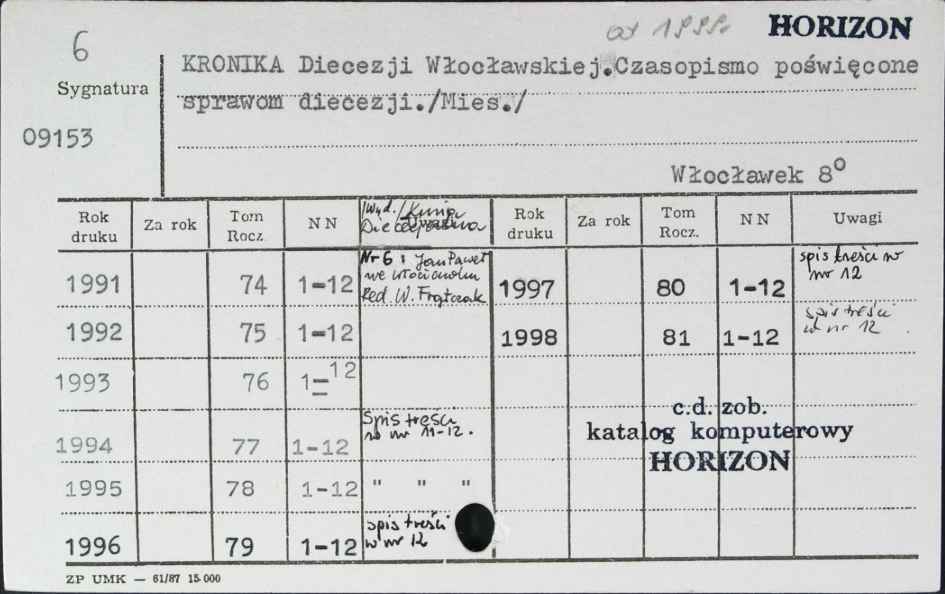 6
od 1999r.
HORIZON
Sygnatura
09153
KRONIKA Diecezji Włocławskiej.Czasopismo poświęcone
sprawom diecezji./Mies./
Włocławek 8°
Rok druku
Za rok
Tom Rocz.
NN
/Wyd./Kuria
Diecezjalna
Uwagi
Rok druku
Za rok
Tom Rocz.
NN
Uwagi
1991 74 1-12 Nr 6: Jan Paweł
we Włocławku
Red. W. Frątczak
1997 80 1-12 spis treści w
nr 12
1992 75 1-12
1998 81 1-12 spis treści
w nr 12
1993 76 1=12
1994 77 1-12 Spis treści
w nr 11-12.
1995 78 1-12 " " "
1996 79 1-12 spis treści
w nr 12
c.d. zob.
katalog komputerowy
HORIZON
ZP UMK — 61/87 15 000